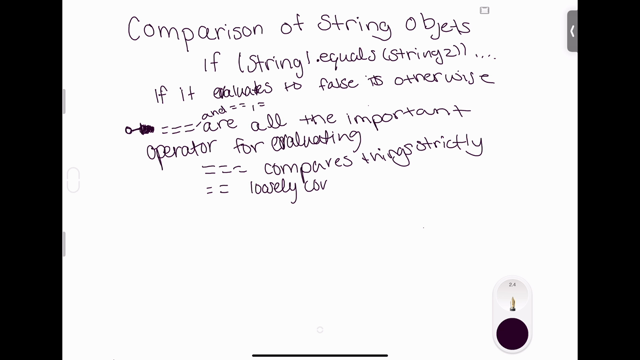 Comparison of String Objets
if (string1.equals(string2)) ...
if it evaluates to false is otherwise
and == , =
=== are all the important
operator for evaluating
=== compares things strictly
== loosely cov
2.4